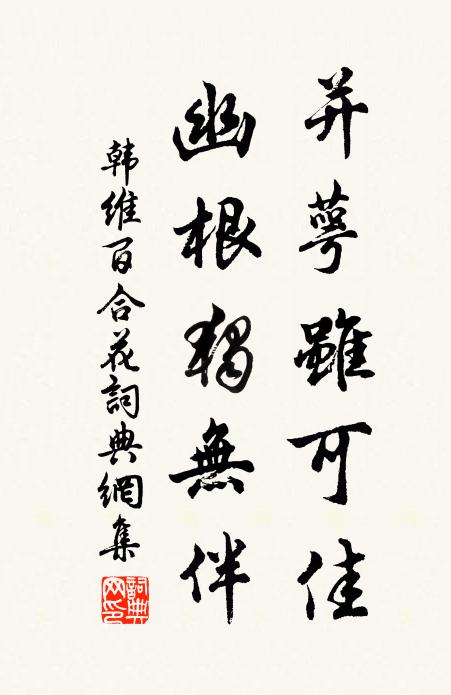 并萼雖可佳
幽根獨無伴
韩維百合花詞典網集
詞典网印